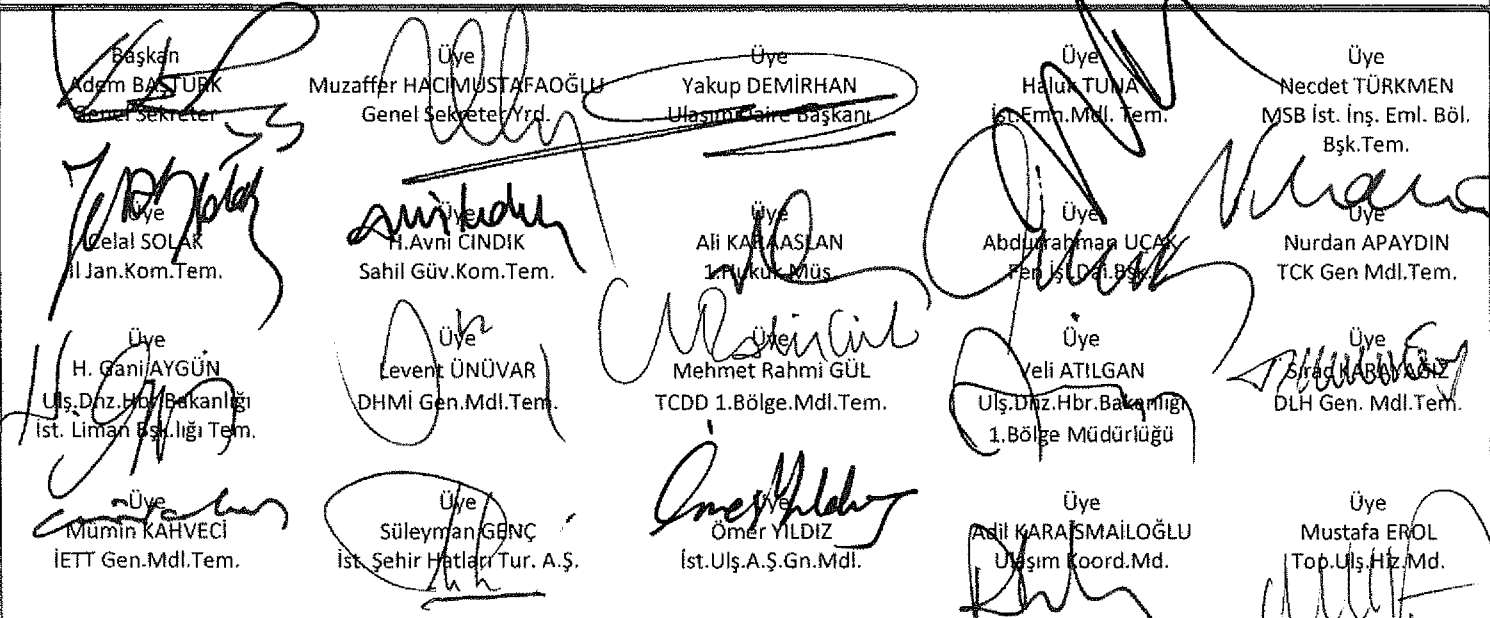 Başkan
Adem BAŞTÜRK
Genel Sekreter
Üye
Muzaffer HACIMUSTAFAOĞLU
Genel Sekreter Yrd.
Üye
Yakup DEMİRHAN
Ulaşım Daire Başkanı
Üye
Haluk TUNA
İst.Emn.Mdl. Tem.
Üye
Necdet TÜRKMEN
MSB İst. İnş. Eml. Böl.
Bşk.Tem.
Üye
Celal SOLAK
İl Jan.Kom.Tem.
Üye
H.Avni CINDIK
Sahil Güv.Kom.Tem.
Üye
Ali KARAASLAN
1.Hukuk Müş.
Üye
Abdurrahman UÇAK
Fen İşl.Dai.Bşk.
Üye
Nurdan APAYDIN
TCK Gen Mdl.Tem.
Üye
H. Gani AYGÜN
Ulş.Dnz.Hbr.Bakanlığı
İst. Liman Bşk.lığı Tem.
Üye
Levent ÜNÜVAR
DHMİ Gen.Mdl.Tem.
Üye
Mehmet Rahmi GÜL
TCDD 1.Bölge.Mdl.Tem.
Üye
Veli ATILGAN
Ulş.Dnz.Hbr.Bakanlığı
1.Bölge Müdürlüğü
Üye
KARAYAĞIZ
DLH Gen. Mdl.Tem.
Üye
Mümin KAHVECİ
İETT Gen.Mdl.Tem.
Üye
Süleyman GENÇ
İst. Şehir Hatları Tur. A.Ş.
Üye
Ömer YILDIZ
İst.Ulş.A.Ş.Gn.Mdl.
Üye
Adil KARAİSMAİLOĞLU
Ulaşım Koord.Md.
Üye
Mustafa EROL
Top.Ulş.Hiz.Md.